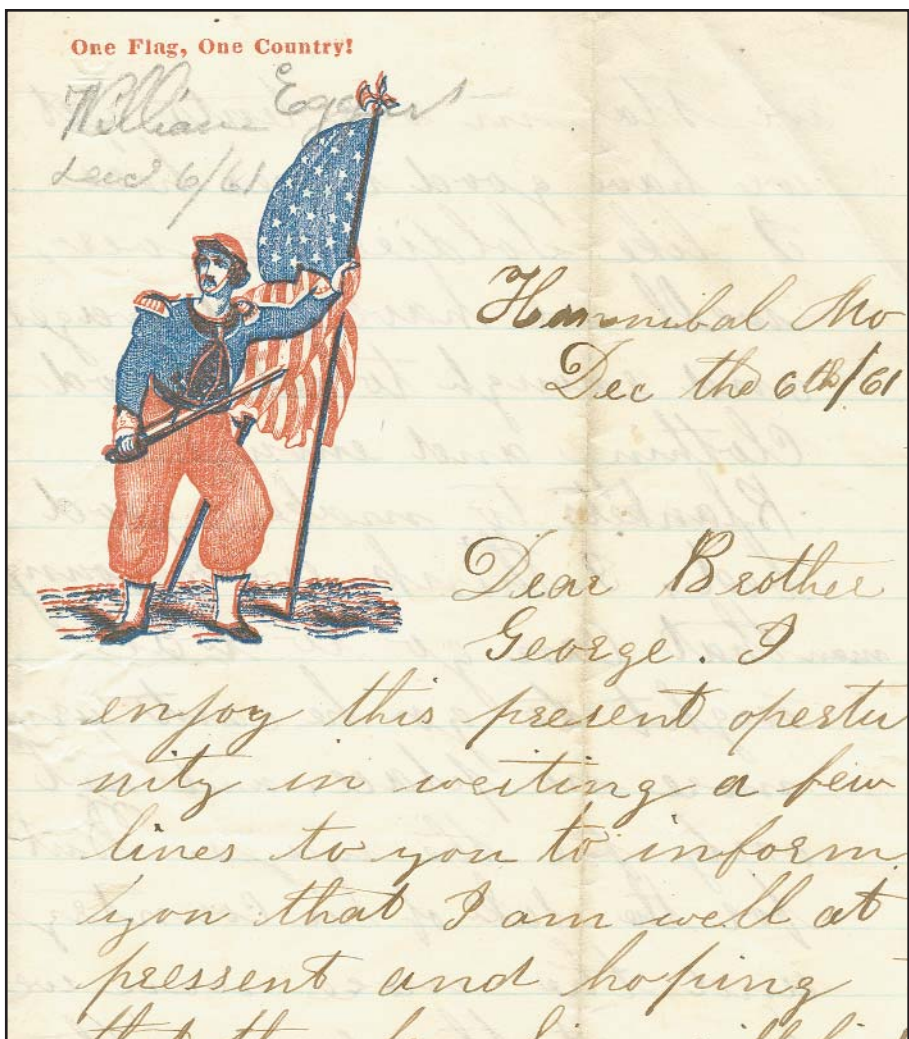 One Flag, One Country!
William Eggert
Dec 6/61
Hannibal Mo
Dec the 6th/61
Dear Brother
George. I
enjoy this present opertu
nity in writing a few
lines to you to inform
you that I am well at
pressent and hoping
that these few lines will find